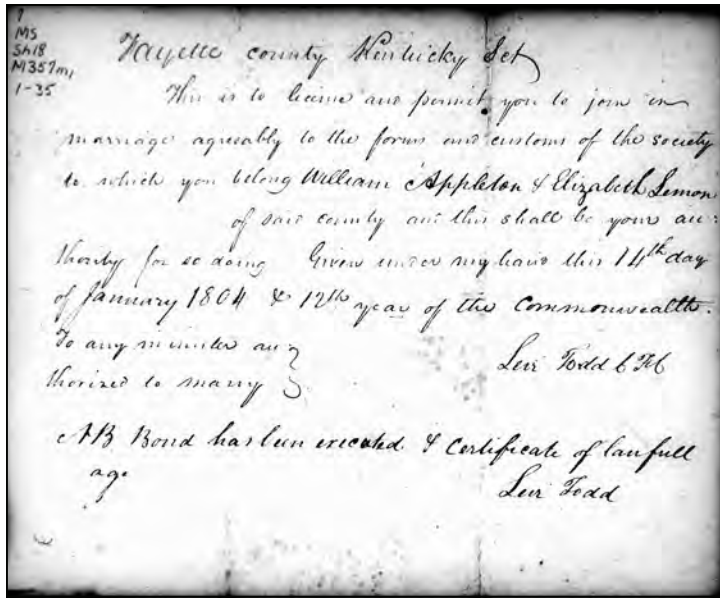 9
MS
Sh18
M357m,
1-35
Fayette county Kentucky Sct
This is to licence and permit you to join in
marriage agreeably to the forms and customs of the society
to which you belong William Appleton & Elizabeth Lemon
of said county and this shall be your au:
thority for so doing Given under my hand this 14th day
of January 1804 & 12th year of the Commonwealth.
To any minister au
thorized to marry
Levi Todd C FC
NB Bond has been executed & Certificate of lawfull
age
Levi Todd